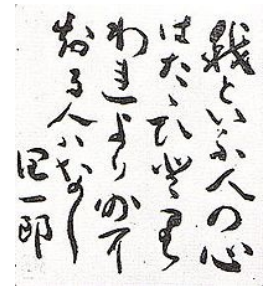 我といふ人の心
はたゝひとり
われより外に
知る人はなし
潤一郎